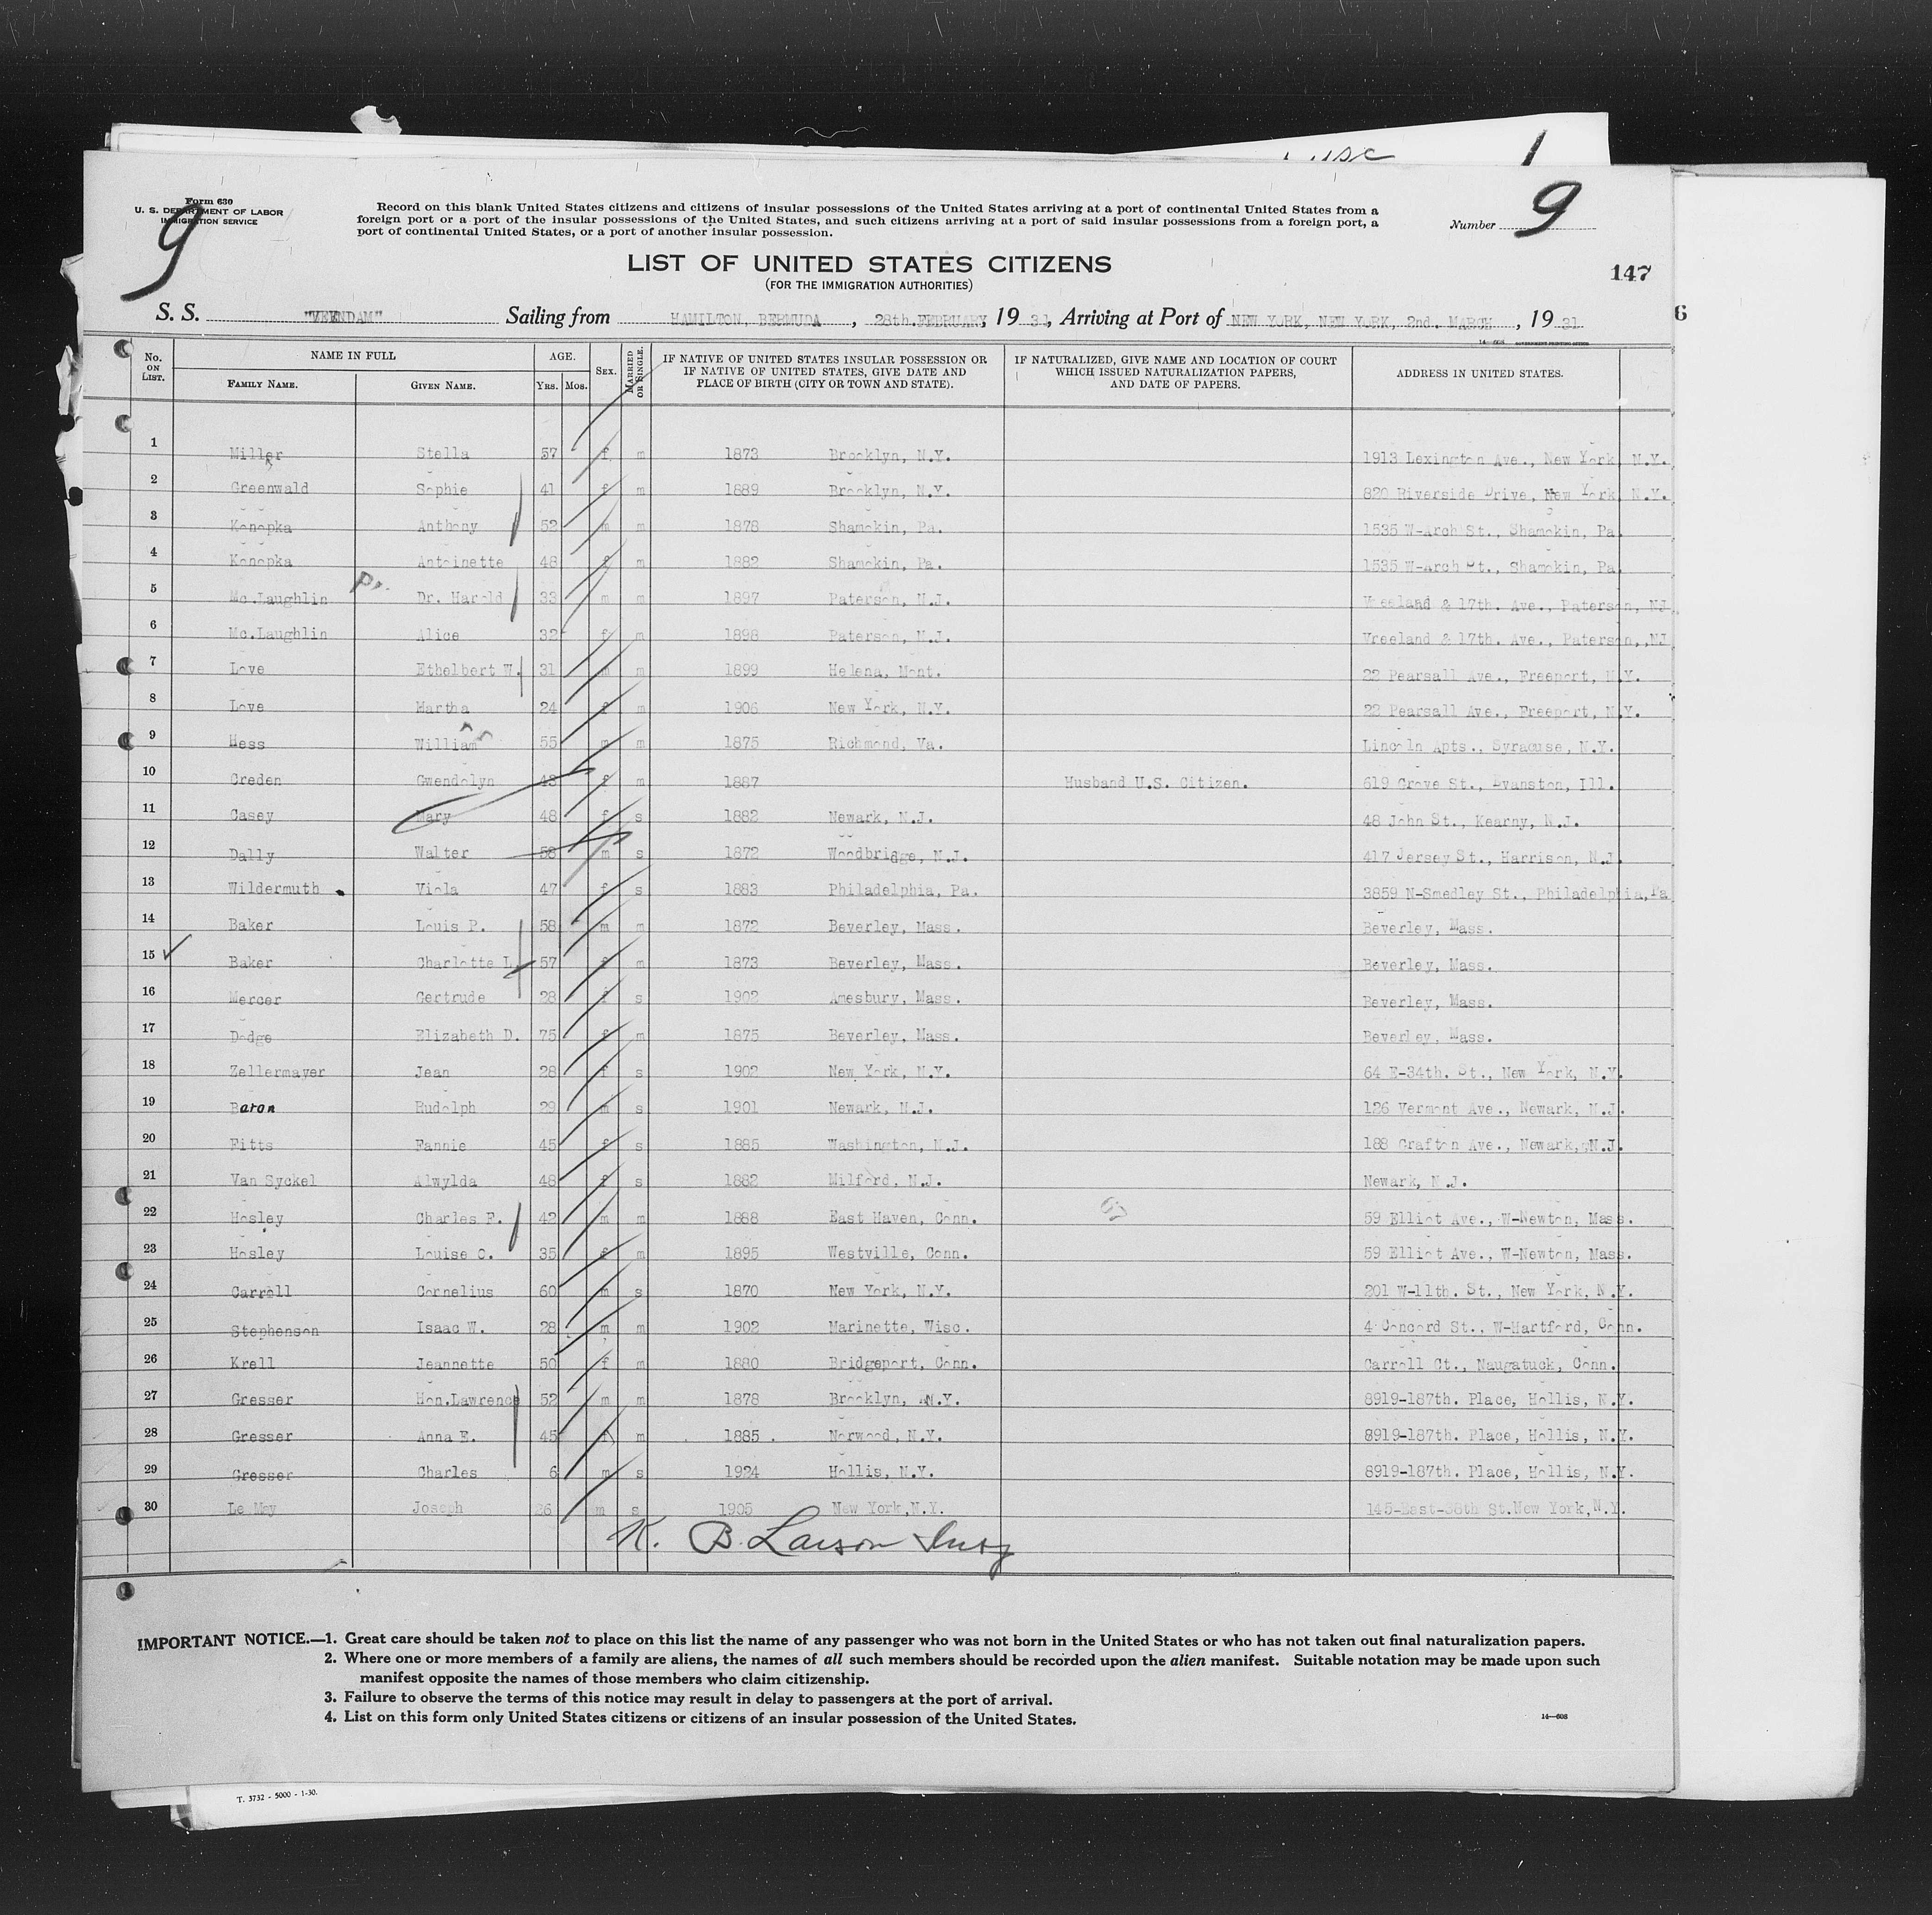 1
Form 630
U. S. DEPARTMENT OF LABOR
IMMIGRATION SERVICE
9
Record on this blank United States citizens and citizens of insular possessions of the United States arriving at a port of continental United States from a
foreign port or a port of the insular possessions of the United States, and such citizens arriving at a port of said insular possessions from a foreign port, a
port of continental United States, or a port of another insular possession.
Number 9
LIST OF UNITED STATES CITIZENS
(FOR THE IMMIGRATION AUTHORITIES)
147
S. S. "VEENDAM" Sailing from HAMILTON, BERMUDA, 28th. FEBRUARY, 19 31, Arriving at Port of NEW YORK, NEW YORK, 2nd. MARCH, 19 31
6
14—608 GOVERNMENT PRINTING OFFICE
No. ON LIST. NAME IN FULL FAMILY NAME. GIVEN NAME. AGE. Yrs. Mos. SEX. MARRIED OR SINGLE. IF NATIVE OF UNITED STATES INSULAR POSSESSION OR IF NATIVE OF UNITED STATES, GIVE DATE AND PLACE OF BIRTH (CITY OR TOWN AND STATE). IF NATURALIZED, GIVE NAME AND LOCATION OF COURT WHICH ISSUED NATURALIZATION PAPERS, AND DATE OF PAPERS. ADDRESS IN UNITED STATES.
1 Miller Stella 57 f m 1873 Brooklyn, N.Y. 1913 Lexington Ave., New York, N.Y.
2 Greenwald Sophie 41 f m 1889 Brooklyn, N.Y. 820 Riverside Drive, New York, N.Y.
3 Konopka Anthony 52 m m 1878 Shamokin, Pa. 1535 W-Arch St., Shamokin, Pa.
4 Konopka Antoinette 48 f m 1882 Shamokin, Pa. 1535 W-Arch St., Shamokin, Pa.
5 Mc.Laughlin Dr. Harold 33 m m 1897 Paterson, N.J. Vreeland & 17th. Ave., Paterson, NJ.
6 Mc.Laughlin Alice 32 f m 1898 Paterson, N.J. Vreeland & 17th. Ave., Paterson,,NJ
7 Love Ethelbert W. 31 m m 1899 Helena, Mont. 22 Pearsall Ave., Freeport, N.Y.
8 Love Martha 24 f m 1906 New York, N.Y. 22 Pearsall Ave., Freeport, N.Y.
9 Hess William 55 m m 1875 Richmond, Va. Lincoln Apts., Syracuse, N.Y.
10 Creden Gwendolyn 43 f m 1887 Husband U.S. Citizen. 619 Grove St., Evanston, Ill.
11 Casey Mary 48 f s 1882 Newark, N.J. 48 John St., Kearny, N.J.
12 Dally Walter 58 m s 1872 Woodbridge, N.J. 417 Jersey St., Harrison, N.J.
13 Wildermuth Viola 47 f s 1883 Philadelphia, Pa. 3859 N-Smedley St., Philadelphia,Pa
14 Baker Louis P. 58 m m 1872 Beverley, Mass. Beverley, Mass.
15 Baker Charlotte L. 57 f m 1873 Beverley, Mass. Beverley, Mass.
16 Mercer Gertrude 28 f s 1902 Amesbury, Mass. Beverley, Mass.
17 Dodge Elizabeth D. 75 f m 1875 Beverley, Mass. Beverley, Mass.
18 Zellermayer Jean 28 f s 1902 New York, N.Y. 64 E-34th. St., New York, N.Y.
19 Baron Rudolph 29 m s 1901 Newark, N.J. 126 Vermont Ave., Newark, N.J.
20 Fitts Fannie 45 f s 1885 Washington, N.J. 188 Grafton Ave., Newark, N.J.
21 Van Syckel Alwylda 48 f s 1882 Milford, N.J. Newark, N.J.
22 Hosley Charles F. 42 m m 1888 East Haven, Conn. 59 Elliot Ave., W-Newton, Mass.
23 Hosley Louise C. 35 f m 1895 Westville, Conn. 59 Elliot Ave., W-Newton, Mass.
24 Carroll Cornelius 60 m s 1870 New York, N.Y. 201 W-11th. St., New York, N.Y.
25 Stephenson Isaac W. 28 m m 1902 Marinette, Wisc. 4 Concord St., W-Hartford, Conn.
26 Krell Jeannette 50 f m 1880 Bridgeport, Conn. Carroll Ct., Naugatuck, Conn.
27 Gresser Hon.Lawrence 52 m m 1878 Brooklyn, N.Y. 8919-187th. Place, Hollis, N.Y.
28 Gresser Anna E. 45 f m 1885 Norwood, N.Y. 8919-187th. Place, Hollis, N.Y.
29 Gresser Charles 6 m s 1924 Hollis, N.Y. 8919-187th. Place, Hollis, N.Y.
30 Le May Joseph 26 m s 1905 New York,N.Y. 145-East-38th St.New York,N.Y.
K. B. Larson Insp
IMPORTANT NOTICE.—1. Great care should be taken not to place on this list the name of any passenger who was not born in the United States or who has not taken out final naturalization papers.
2. Where one or more members of a family are aliens, the names of all such members should be recorded upon the alien manifest. Suitable notation may be made upon such
manifest opposite the names of those members who claim citizenship.
3. Failure to observe the terms of this notice may result in delay to passengers at the port of arrival.
4. List on this form only United States citizens or citizens of an insular possession of the United States.
14—608
T. 3732 - 5000 - 1-30.